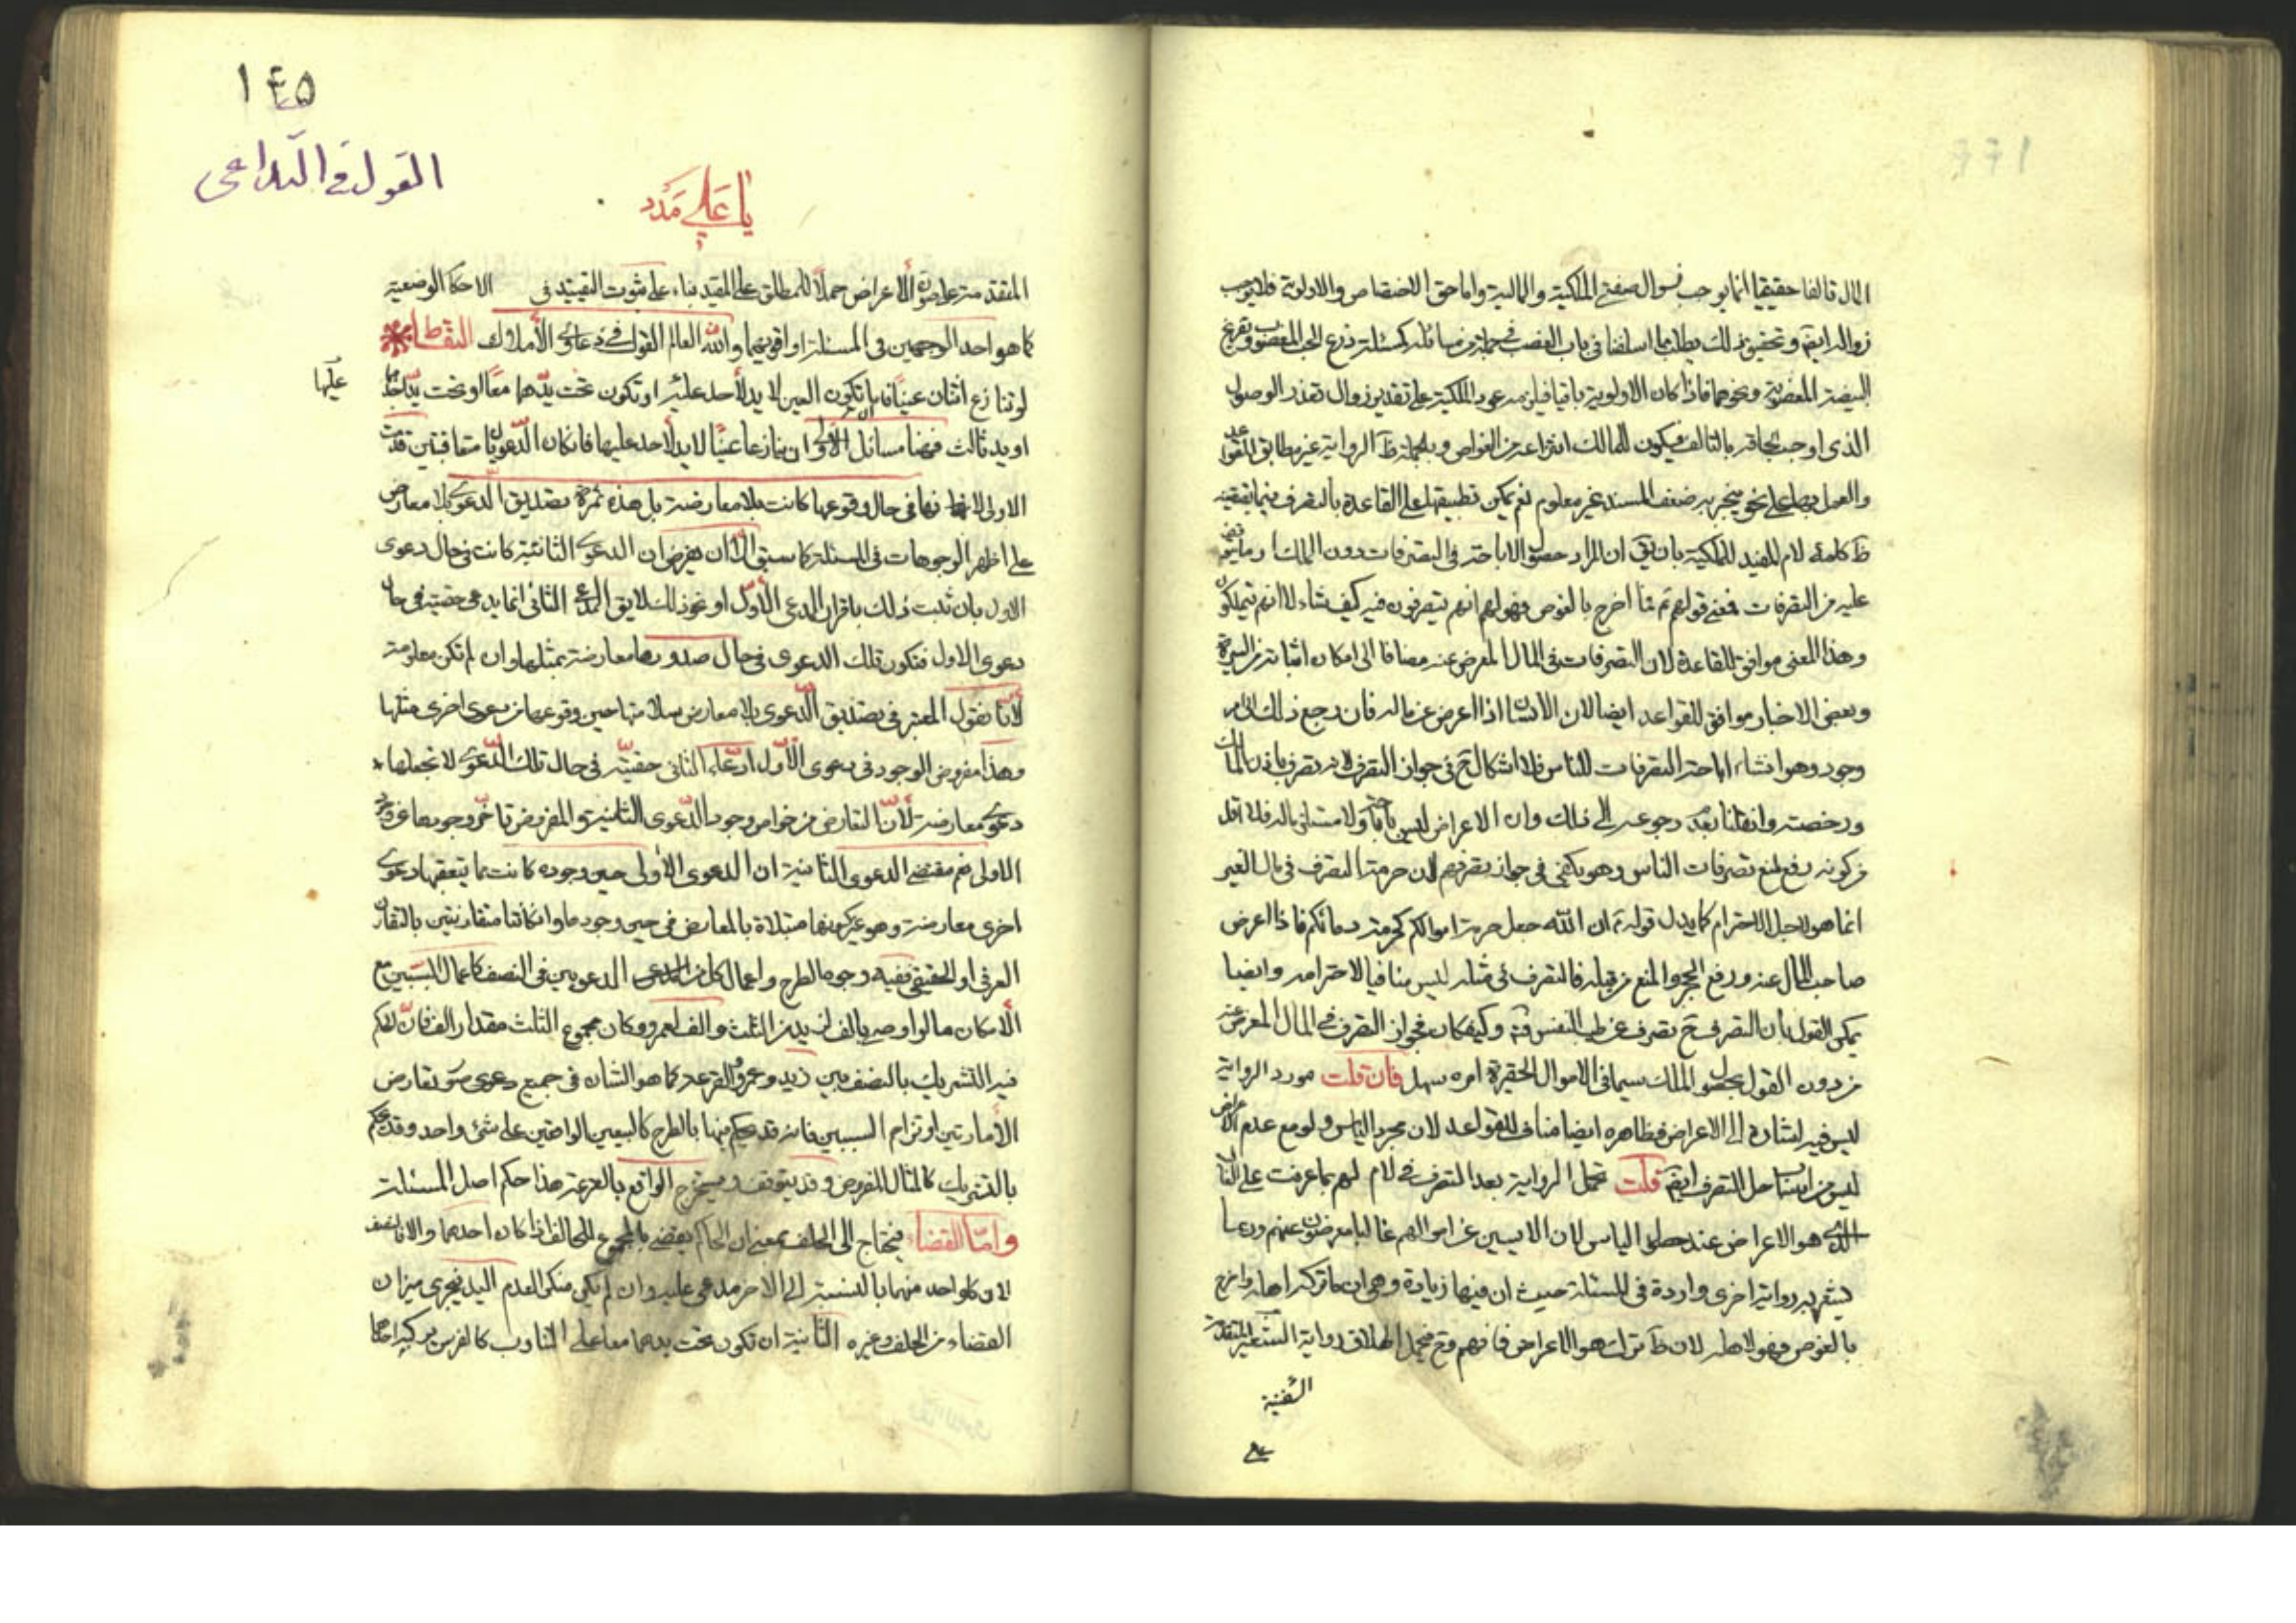 المال تالفا حقيقيا انما يوجب زوال صفتي الملكية والمالية واما حق الاختصاص والاولوية فلا يوجب
زواله ايضا وتحقيق ذلك يطلب مما اسلفنا فى باب الغصب فى جملة من مسائله كمسئلة زرع الحب المغصوب وتفريخ
البيضة المغصوبة ونحوهما فاذا كان الاولوية باقيا فيلزمه عود الملكية على تقدير زوال تعذر الوصول
الذى اوجب لحاقه بالتالف فيكون للمالك انتزاعه من الغواص وبالجملة ظ الرواية غير مطابق للقواعد
والعمل بها على نحو ينجبر به ضعف المسند غير معلوم نعم يمكن تطبيقها على القاعدة بالتصرف فيما يقتضيه
ظ كلمة لام المفيد للملكية بان يق ان المراد حصول الاباحة فى التصرفات دون الملك
عليه من التصرفات فمعنى قولهم ع ما اخرج بالغوص فهو لهم انهم يتصرفون فيه كيف شاء لا انهم يتملكون
وهذا المعنى موافق للقاعدة لان التصرفات فى المال المعرض عنه مضافا الى امكان اثباته من السيرة
وبعض الاخبار موافق للقواعد ايضا لان الانسان اذا اعرض عن ماله فان رجع ذلك الى امر
وجودى وهو انشاء اباحة التصرفات للناس فلا اشكال ح فى جواز التصرف لانه تصرف باذن المالك
ورخصته وان قلنا بعدم رجوعه الى ذلك وان الاعراض ليس باباحة ولا مستلزما له فلا اقل
من كونه رفع لمنع تصرفات الناس وهو يكفى فى جواز تصرفهم لان حرمة التصرف فى مال الغير
انما هو لاجل الاحترام كما يدل قوله ع ان الله جعل حرمة اموالكم كحرمة دمائكم فاذا اعرض
صاحب المال عنه ورفع الحجر والمنع من قبله فالتصرف فى مثله ليس منافيا لاحترامه وايضا
يمكن القول بان التصرف ح تصرف عن طيب النفس وكيف كان فجواز التصرف فى المال المعرض عنه
من دون القول بحصول الملك سيما فى الاموال الحقيرة امره سهل فان قلت مورد الرواية
ليس فيه اشارة الى الاعراض فظاهره ايضا مناف للقواعد لان مجرد الياس ولو مع عدم الاعراض
ليس من اسباب حل التصرف ايضا قلت تحمل الرواية بعد التصرف فى لام لهم بما عرفت على الغالب
الذى هو الاعراض عند حصول الياس لان الايسين عن اموالهم غالبا معرضون عنهم وربما
يشعر به رواية اخرى واردة فى المسئلة حيث ان فيها زيادة وهى ان ما تركه اهله واخرج
بالغوص فهو لاهله لان ظ ترك هو الاعراض فافهم وح فيحمل اطلاق رواية الشعيرى المتقدمة
السفينة
١٤٥
القول فى التداعى
يا على مدد
المتقدمة على صورة الاعراض حملا للمطلق على المقيد بناء على ثبوت التقييد فى الاحكام الوضعية
كما هو احد الوجهين فى المسئلة او اقويهما والله العالم القول فى دعاوى الأملاك التقاط
لو تنازع اثنان عينا فاما تكون العين لا يد لأحد عليها او تكون تحت يدهما معا او تحت يد احدهما
عليها
او يد ثالث فهنا مسائل الأولى ان يتنازعا عينا لا يد لاحد عليها فان كان الدعويان متعاقبتين قدمت
الاولى لانها فى حال وقوعها كانت بلا معارضة بل هذه ثمرة تصديق الدعوى بلا معارض
على اظهر الوجوهات فى المسئلة كما سبق الا ان يفرض ان الدعوى الثانية كانت فى حال دعوى
الاول بان ثبت ذلك باقرار المدعى الأول او نحو ذلك لا يق المدعى الثانى انما يدعى حقيته فى حال
دعوى الاول فتكون تلك الدعوى فى حال صدورها معارضة بمثلها وان لم تكن معلومة
لأنا نقول المعتبر فى تصديق الدعوى بلا معارض سلامتها حين وقوعها من دعوى اخرى مثلها
وهذا مفروض الوجود فى دعوى الأول ادعاء الثانى حقيته فى حال تلك الدعوى لا تجعلها
دعوى معارضة لأن التعارض من خواص وجود الدعوى الثانية والمفروض تاخر وجودها عن وجود
الاولى نعم مقتضى الدعوى الثانية ان الدعوى الاولى حين وجوده كانت مما يتعقبها دعوى
اخرى معارضة وهو غير كونها مبتلاة بالمعارض فى حين وجودها وان كانتا متقارنتين بالتقارن
العرفى او الحقيقى ففيه وجوه الطرح واعمال كل من الدعويين فى النصف كاعمال السببين مع
الأمكان كما لو اوصى بالف لزيد من الثلث والف لعمرو وكان مجموع الثلث مقدار الف فان الحكم
فيه التشريك بالنصف بين زيد وعمرو والقرعة كما هو الشان فى جميع دعوى تعارض
الأمارتين او تزاحم السببين فانه قد يحكم فيهما بالطرح كالبيعين الواقعين على شئ واحد وقد يحكم
بالتشريك كالمثال المفروض وقد يتوقف ويستخرج الواقع بالقرعة هذا حكم اصل المسئلة
وامّا القضاء فيحتاج الى الحلف بمعنى ان الحاكم يقضى بالمجموع للحالف اذا كان احدهما والا نصف
لان كل واحد منهما بالنسبة الى الاخر مدعى عليه وان لم يكن منكرا لعدم اليد فيجرى ميزان
القضاء من الحلف وغيره الثانية ان تكون تحت يدهما معا على التناوب كالفرس يركبه احدهما